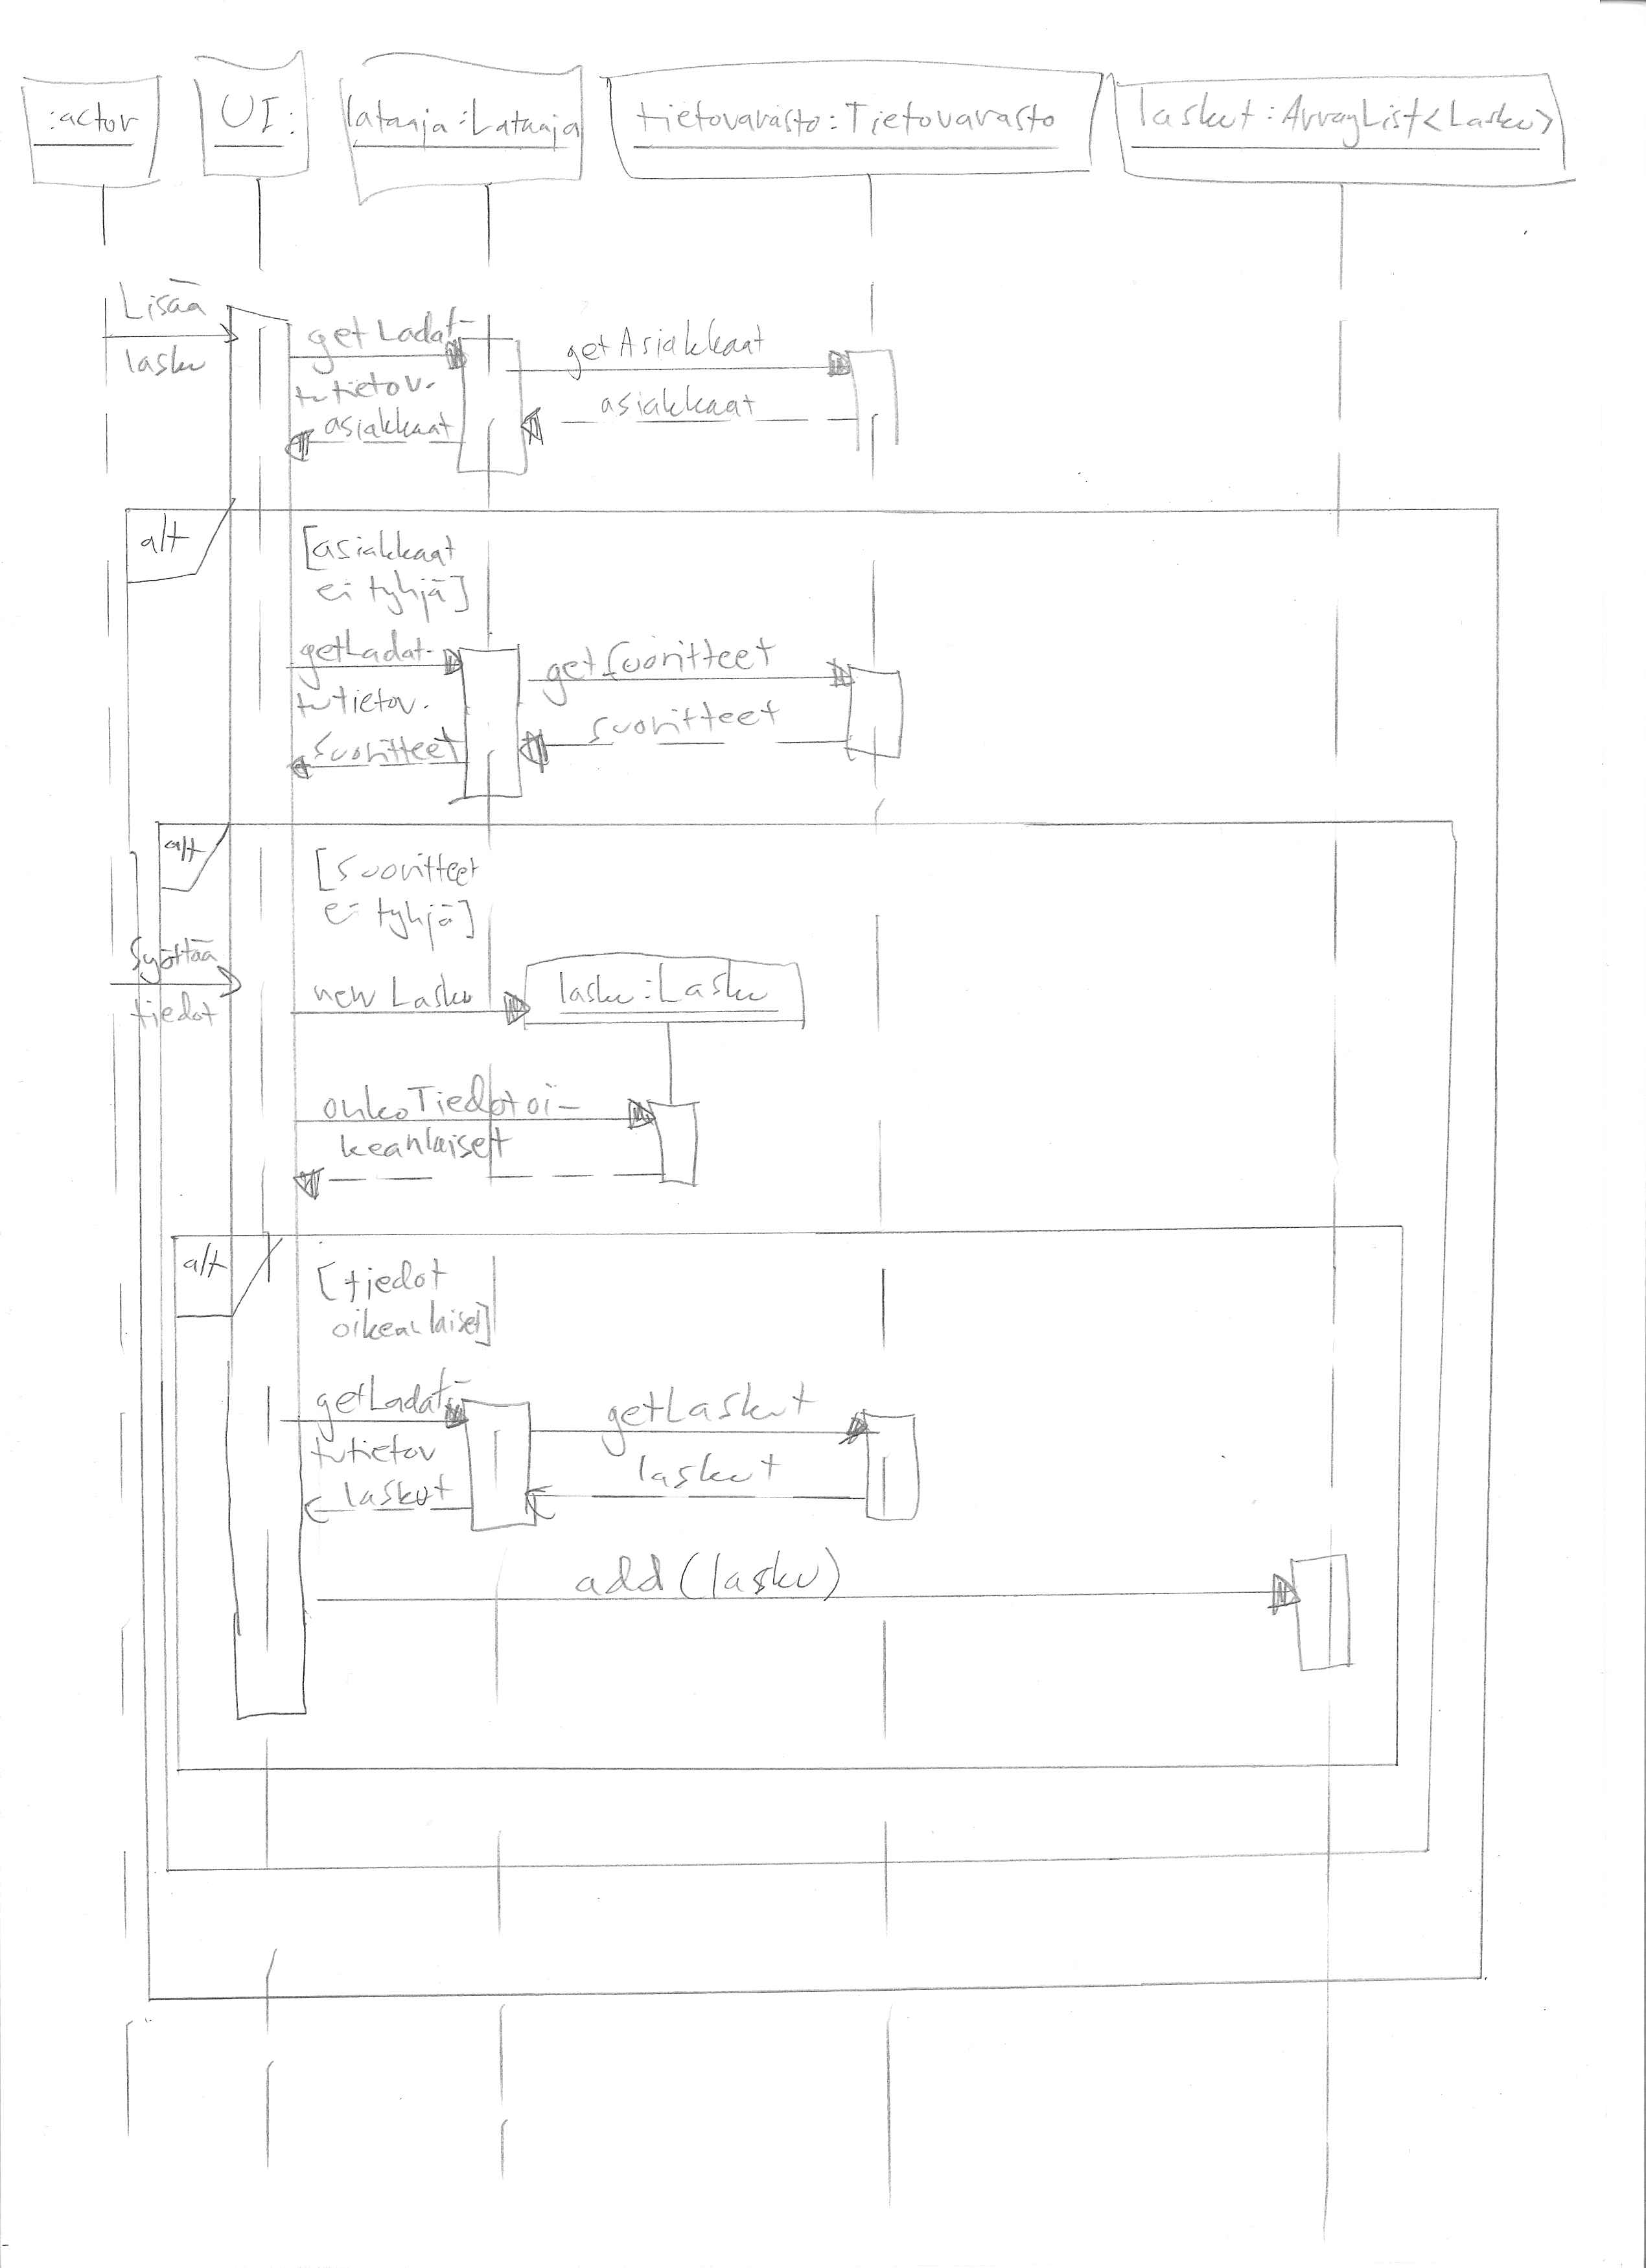 :actor
UI:
lataaja:Lataaja
tietovarasto:Tietovarasto
laskut:ArrayList<Lasku>
Lisää
lasku
getLadat-
tutietov.
asiakkaat
getAsiakkaat
asiakkaat
alt
[asiakkaat
ei tyhjä]
getLadat-
tutietov.
suoritteet
getSuoritteet
suoritteet
alt
[suoritteet
ei tyhjä]
Syöttää
tiedot
new Lasku
lasku:Lasku
onkoTiedotoi-
keanlaiset
alt
[tiedot
oikeanlaiset]
getLadat-
tutietov
laskut
getLaskut
laskut
add(lasku)